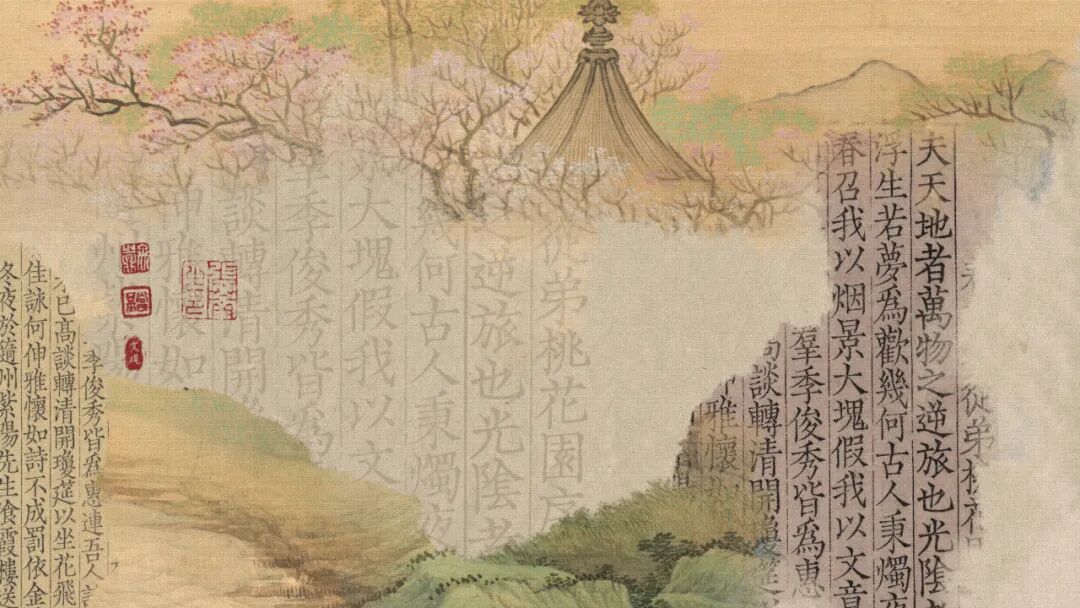 從弟桃花
天天地者萬物之逆旅也光陰
浮生若夢爲歡幾何古人秉燭夜
春召我以烟景大塊假我以文章
羣季俊秀皆爲惠
談轉清開瓊筵
雅懷
從弟桃花園
逆旅也光陰者
幾何古人秉燭夜
景大塊假我以文
羣季俊秀皆爲
談轉清開
雅懷如
季俊秀皆爲惠連吾人
已高談轉清開瓊筵以坐花飛
佳詠何伸雅懷如詩不成罰依金
冬夜於隨州紫陽先生飡霞樓送